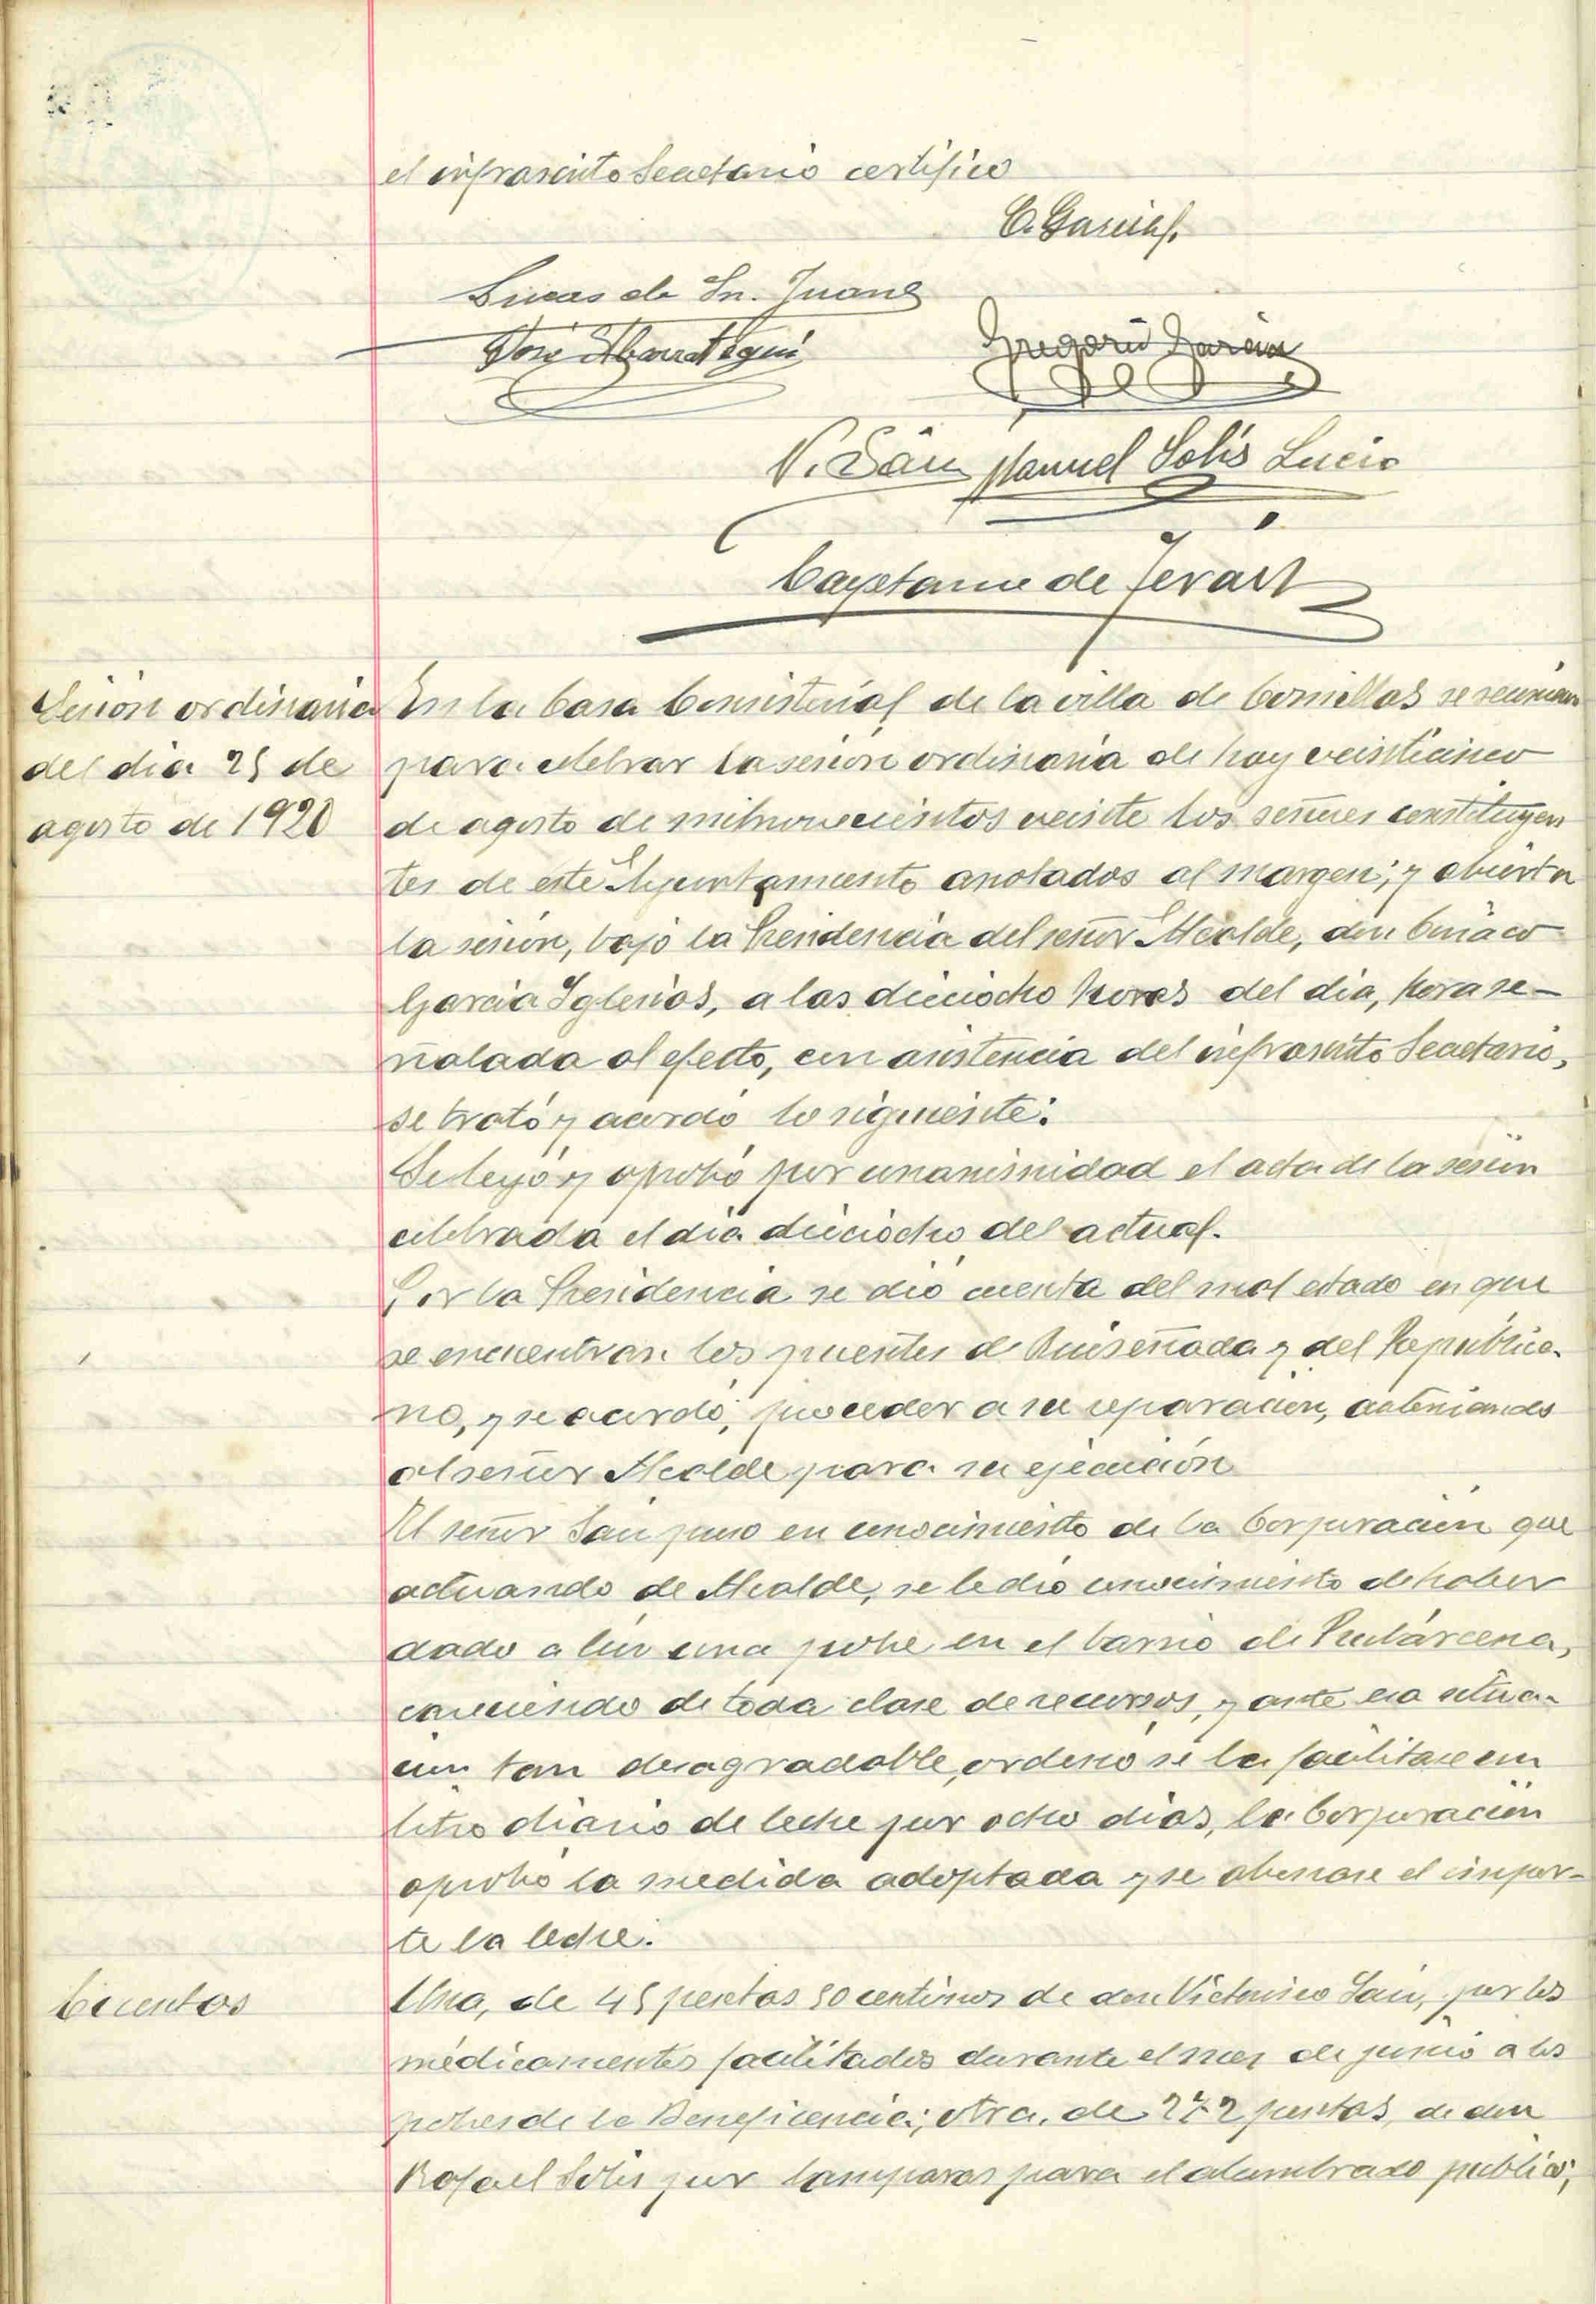 el infrascrito Secretario certifico
C. García
Lucas de Sn. Juan
Gregorio García
V. Sáiz Manuel Solís Lucio
Cayetano de Terán
Sesión ordinaria
del dia 25 de
agosto de 1920
En la Casa Consistorial de la villa de Comillas se reunieron
para celebrar la sesión ordinaria de hoy veinticinco
de agosto de mil novecientos veinte los señores constituyen
tes de este Ayuntamiento anotados al margen; y abierta
la sesión, bajo la Presidencia del señor Alcalde, don Ciriaco
García Iglesias, a las dieciocho horas del dia, hora se-
ñalada al efecto, con asistencia del infrascrito Secretario,
se trató y acordó lo siguiente:
Se leyó y aprobó por unanimidad el acta de la sesión
celebrada el día dieciocho del actual.
Por la Presidencia se dió cuenta del mal estado en que
se encuentran los puentes de Ruiseñada y del Republica-
no, y se acordó, proceder a su reparación, autorizando
al señor Alcalde para su ejecución
El señor Sáiz puso en conocimiento de la Corporación que
actuando de Alcalde, se le dió conocimiento de haber
dado a luz una pobre en el barrio de Rubárcena,
careciendo de toda clase de recursos, y ante esa situa-
ción tan desagradable, ordenó se la facilitase un
litro diario de leche por ocho dias, la Corporación
aprobó la medida adoptada y se abonase el impor-
te la leche.
Cuentas
Una, de 45 pesetas 50 centimos de don Victorino Sáiz, por los
médicamentos facilitados durante el mes de junio a los
pobres de la Beneficencia; otra, de 272 pesetas, de don
Rafael Solís por lamparas para el alumbrado publico;